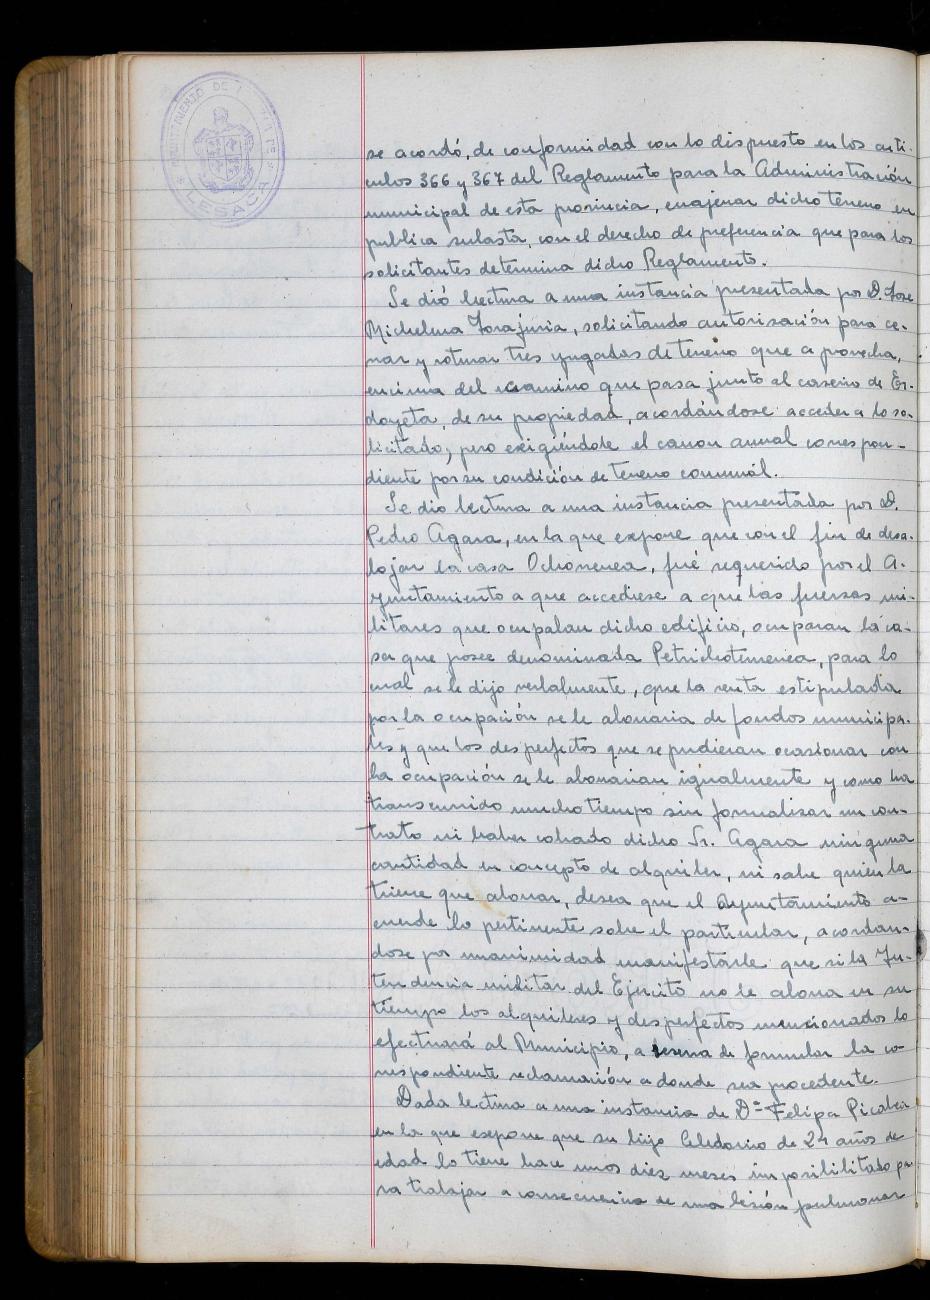 AYUNTAMIENTO DE
LESACA
se acordó, de conformidad con lo dispuesto en los arti-
culos 366 y 367 del Reglamento para la Administración
municipal de esta provincia, enajenar dicho terreno en
publica subasta, con el derecho de preferencia que para los
solicitantes determina dicho Reglamento.
Se dió lectura a una instancia presentada por D. Jose
Michelena Torajuria, solicitando autorización para ce-
rrar y roturar tres yugadas de terreno que aprovecha,
encima del camino que pasa junto al caserio de Er-
doyeta, de su propiedad, acordándose acceder a lo so-
licitado, pero exigiéndole el canon anual correspon-
diente por su condición de terreno comunal.
Se dio lectura a una instancia presentada por D.
Pedro Agara, en la que expone que con el fin de desa-
lojar la casa Ochonenea, fué requerido por el A-
yuntamiento a que accediese a que las fuerzas mi-
litares que ocupaban dicho edificio, ocuparan la ca-
sa que posee denominada Petrichotenenea, para lo
cual se le dijo verbalmente, que la renta estipulada
por la ocupación se le abonaria de fondos municipa-
les y que los desperfectos que se pudieran ocasionar con
la ocupación se le abonarian igualmente y como ha
transcurrido mucho tiempo sin formalizar un con-
trato ni haber cobrado dicho Sr. Agara ninguna
cantidad en concepto de alquiler, ni sabe quien la
tiene que abonar, desea que el Ayuntamiento a-
cuerde lo pertinente sobre el particular, acordan-
dose por unanimidad manifestarle que si la In-
tendencia militar del Ejercito no le abona en su
tiempo los alquileres y desperfectos mencionados lo
efectuará el Municipio, a reserva de formular la co-
rrespondiente reclamación a donde sea procedente.
Dada lectura a una instancia de Dª Felipa Picabea
en la que expone que su hijo Celedonio de 21 años de
edad lo tiene hace unos diez meses imposibilitado pa-
ra trabajar a consecuencia de una lesión pulmonar